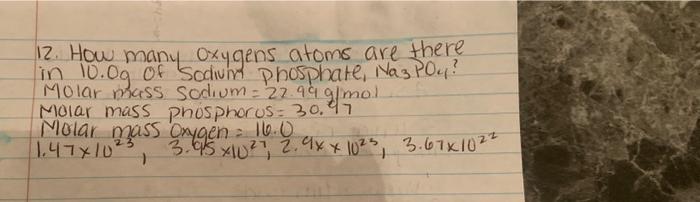 12. How many oxygens atoms are there
in 10.0g of Sodium phosphate, Na₃PO₄?
Molar mass Sodium = 22.99 g/mol
Molar mass phosphorus = 30.97
Molar mass Oxygen = 16.0
1.47x10²³, 3.95x10²⁷, 2.4x x 10²³, 3.67x10²²